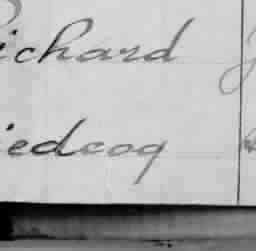 ichard
iedcoq